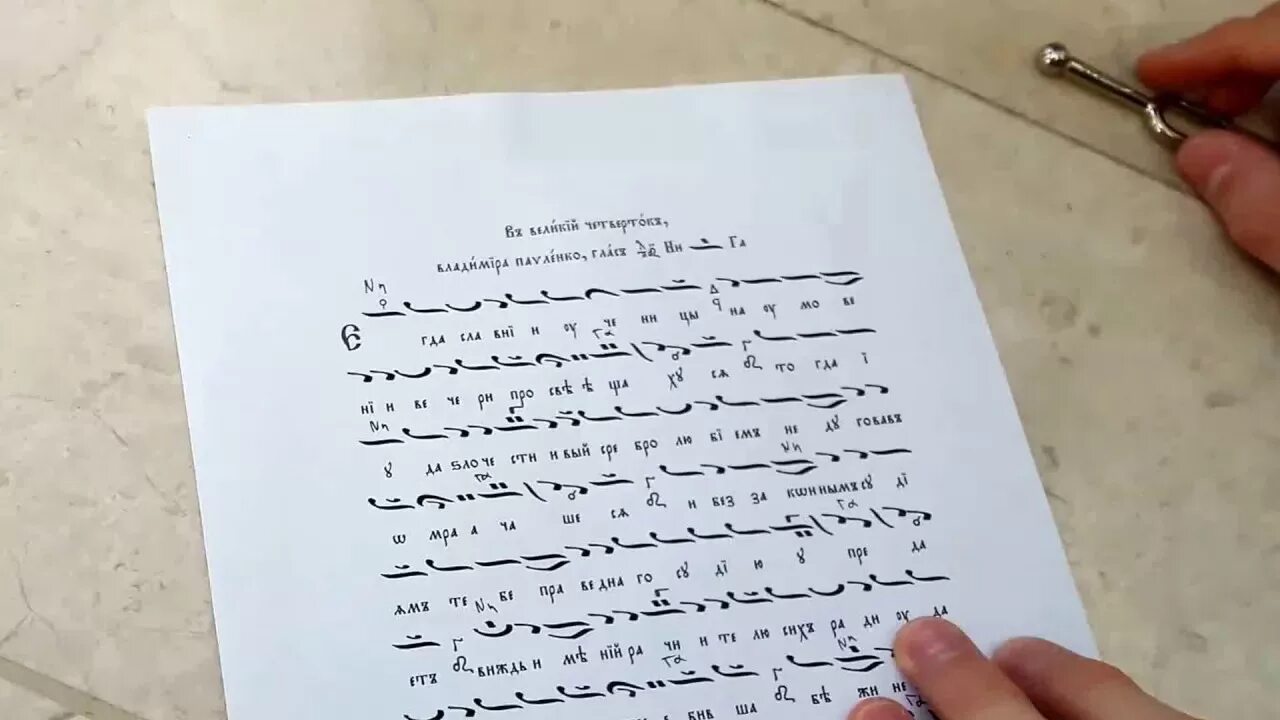 Въ вели́кїй четверто́къ,
влади́мїра пауле́нко, гла́съ Ни Га
Є гда сла внї и оу че ни цы на оу мо ве
нї и ве че ри про свѣ ѣ ща хꙋ сѧ то гда ї
ꙋ да ѕло че сти и вый сре бро лю вї емъ не дꙋ говавъ
ѡ мра а ча ше сѧ и без за кѡннымъ сꙋ дї
ѧмъ те бе пра ведна го сꙋ дї ю ꙋ пре да
етъ виждь и мѣ нїй ра чи и те лю сихъ ра ди оу да
ша бѣ жи не